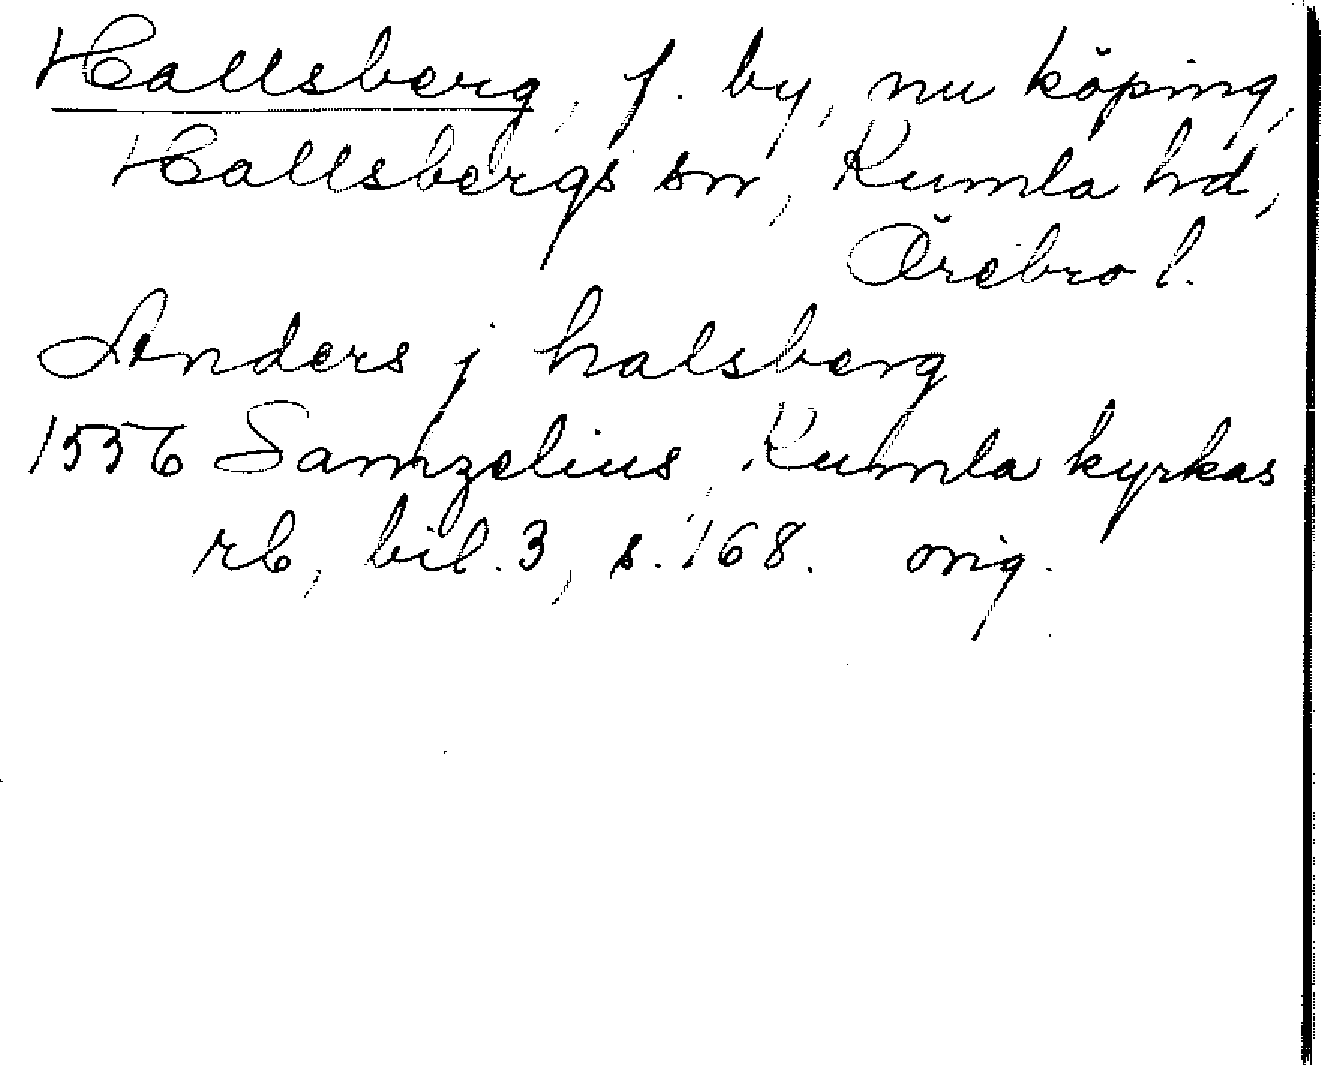 Hallsberg, f. by, nu köping,
Hallsbergs sn, Kumla hd,
Örebro l.
Anders j halsberg
1556 Samzelius, Kumla kyrkas
rb, bil. 3, s. 168. orig.